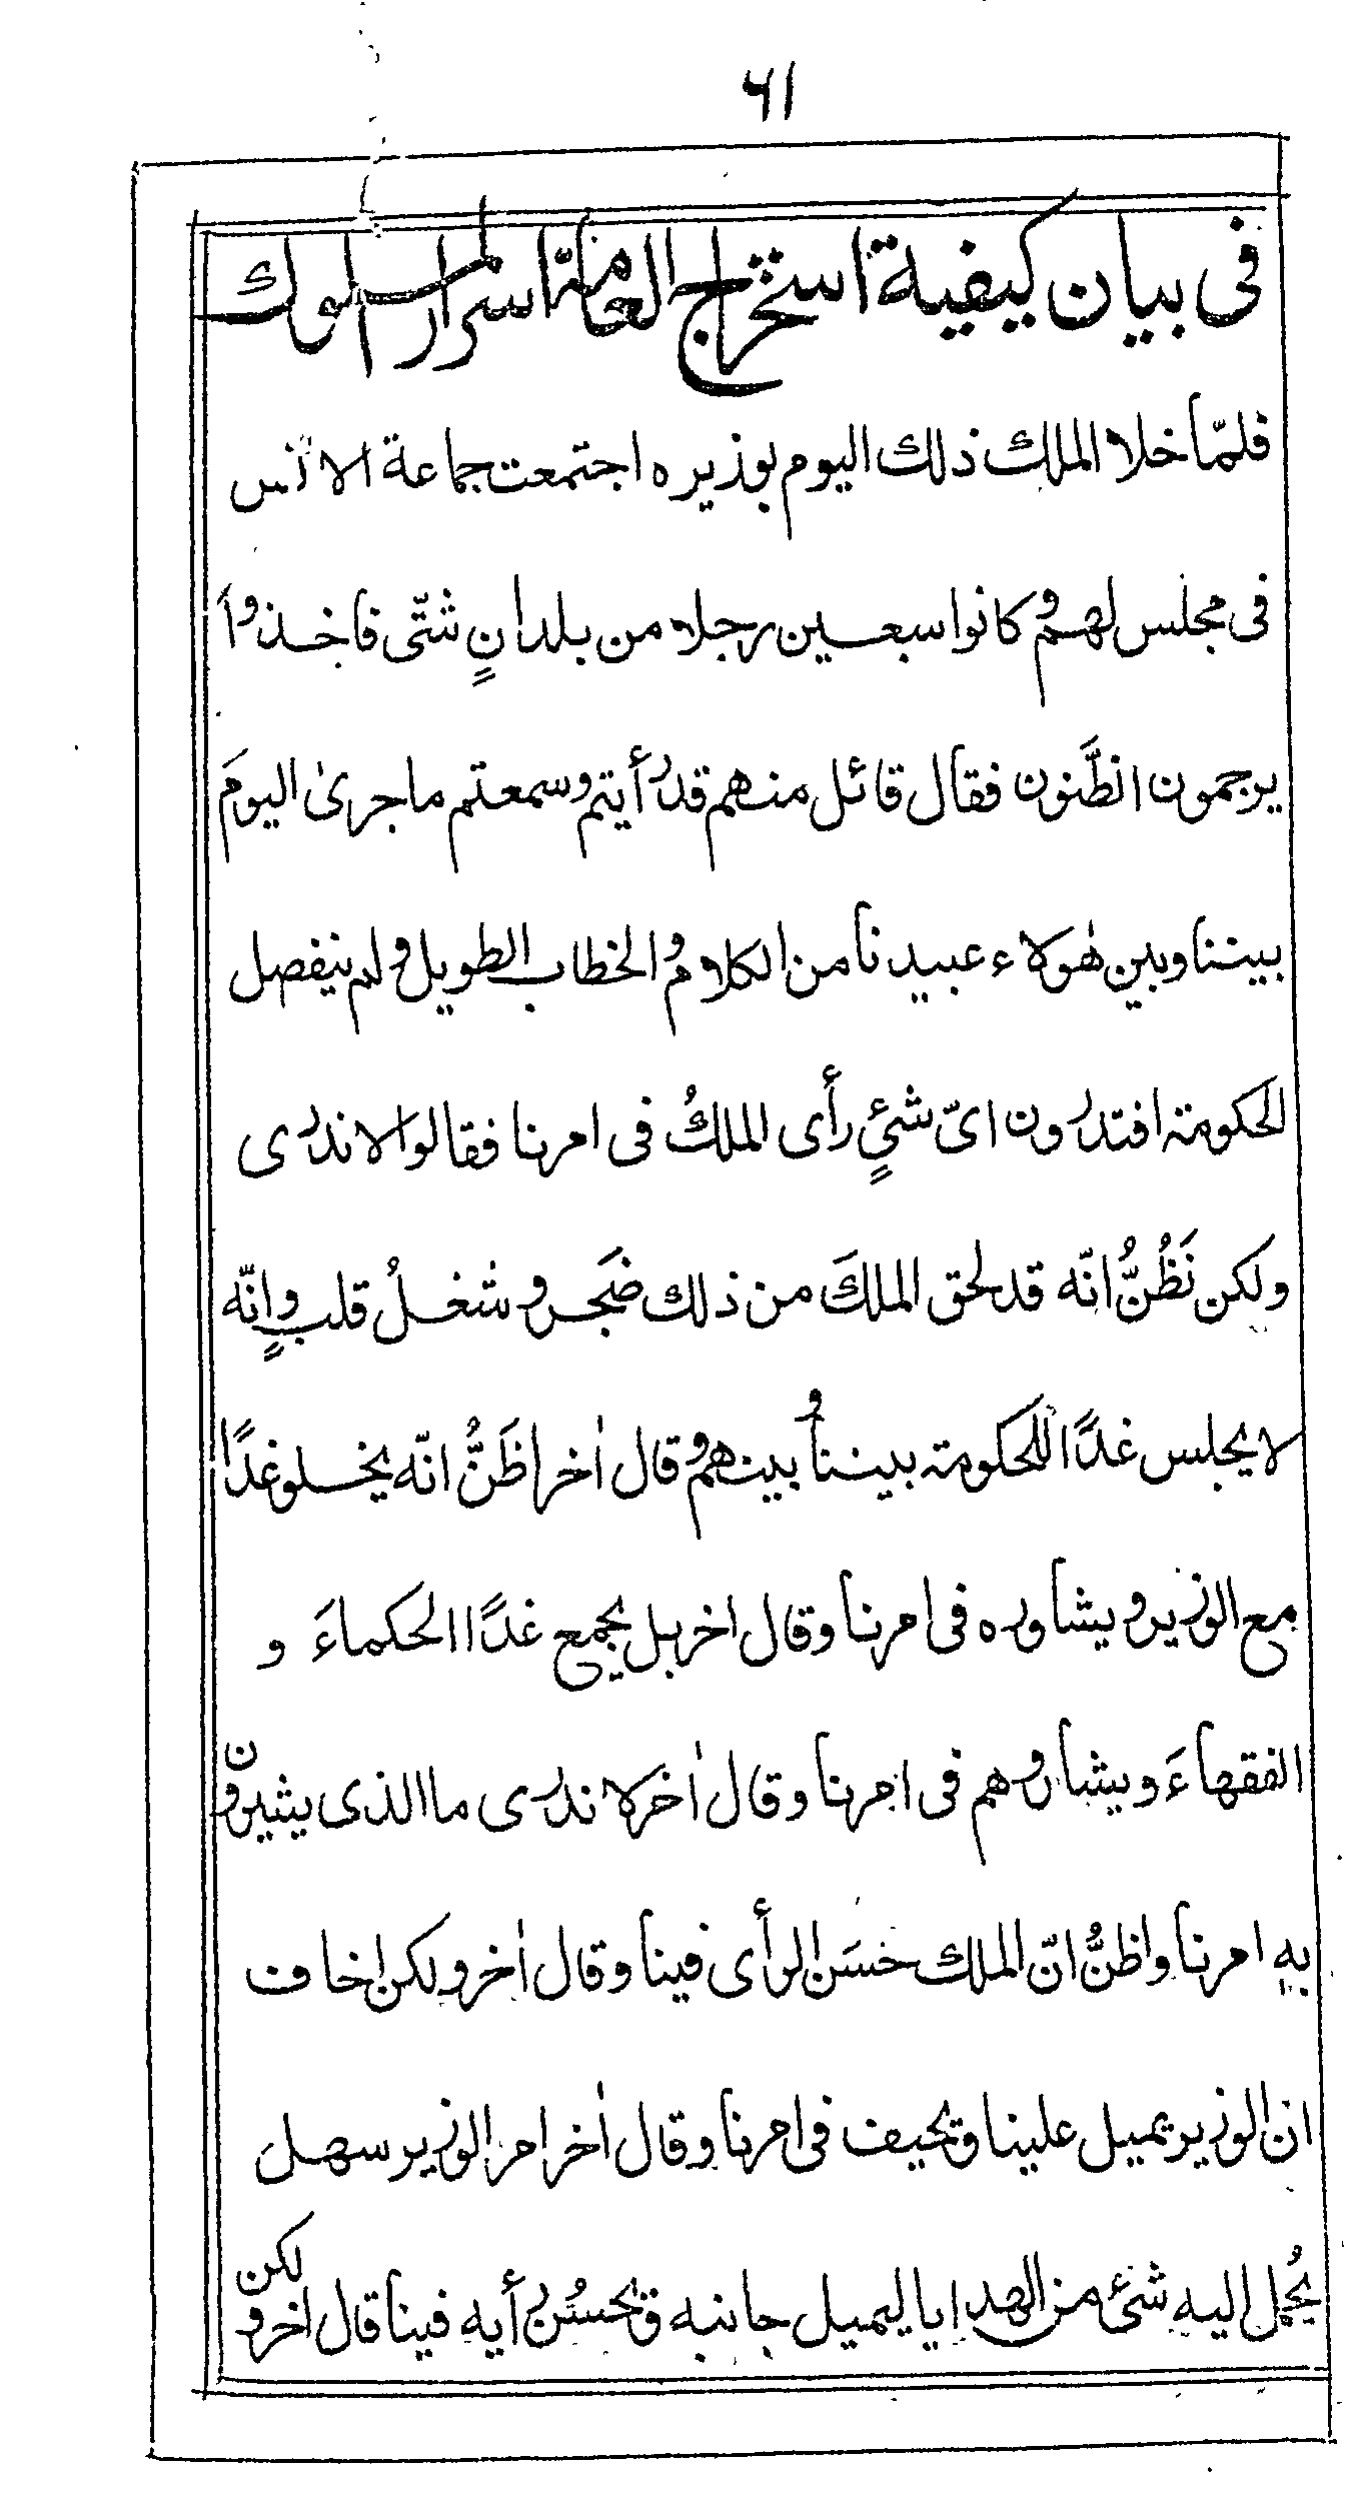 ۶۱
فى بيان كيفية استخراج العامّة اسرار الملوك
فلمّا خلا الملك ذلك اليوم بوذيره اجتمعت جماعة الانس
فى مجلس لهم وكانوا سبعين رجلا من بلدانٍ شتّى فاخذوا
يرجمون الظَّنون فقال قائل منهم قد رأيتم وسمعتم ما جرىٰ اليومَ
بيننا وبين هٰولاء عبيدنا من الكلام والخطاب الطويل ولم ينفصل
الحكومة افتدرون اىّ شئٍ رأى الملكُ فى امرنا فقالوا لا ندرى
ولكن نَظُنُّ انّه قد لحق الملكَ من ذلك ضَجر و شغلُ قلبٍ وانّه
لا يجلس غدًا للحكومة بيننا وبينهم وقال اٰخر اظَنُّ انّه يخلو غدًا
مع الوزير و يشاوره فى امرنا وقال اخر بل يجمع غدًا الحكماءَ و
الفقهاءَ و يشاورهم فى امرنا وقال اٰخر لا ندرى ما الذى يشيرون
به امرنا واظنُّ انّ الملك حَسَن الرأى فينا وقال اٰخر ولكن اخاف
ان الوزير يميل علينا و يحيف فى امرنا وقال اٰخر امر الوزير سهل
يُحمل اليه شئ من الهدايا ليميل جانبه و يحسُن رأيه فينا قال اخر و لكن